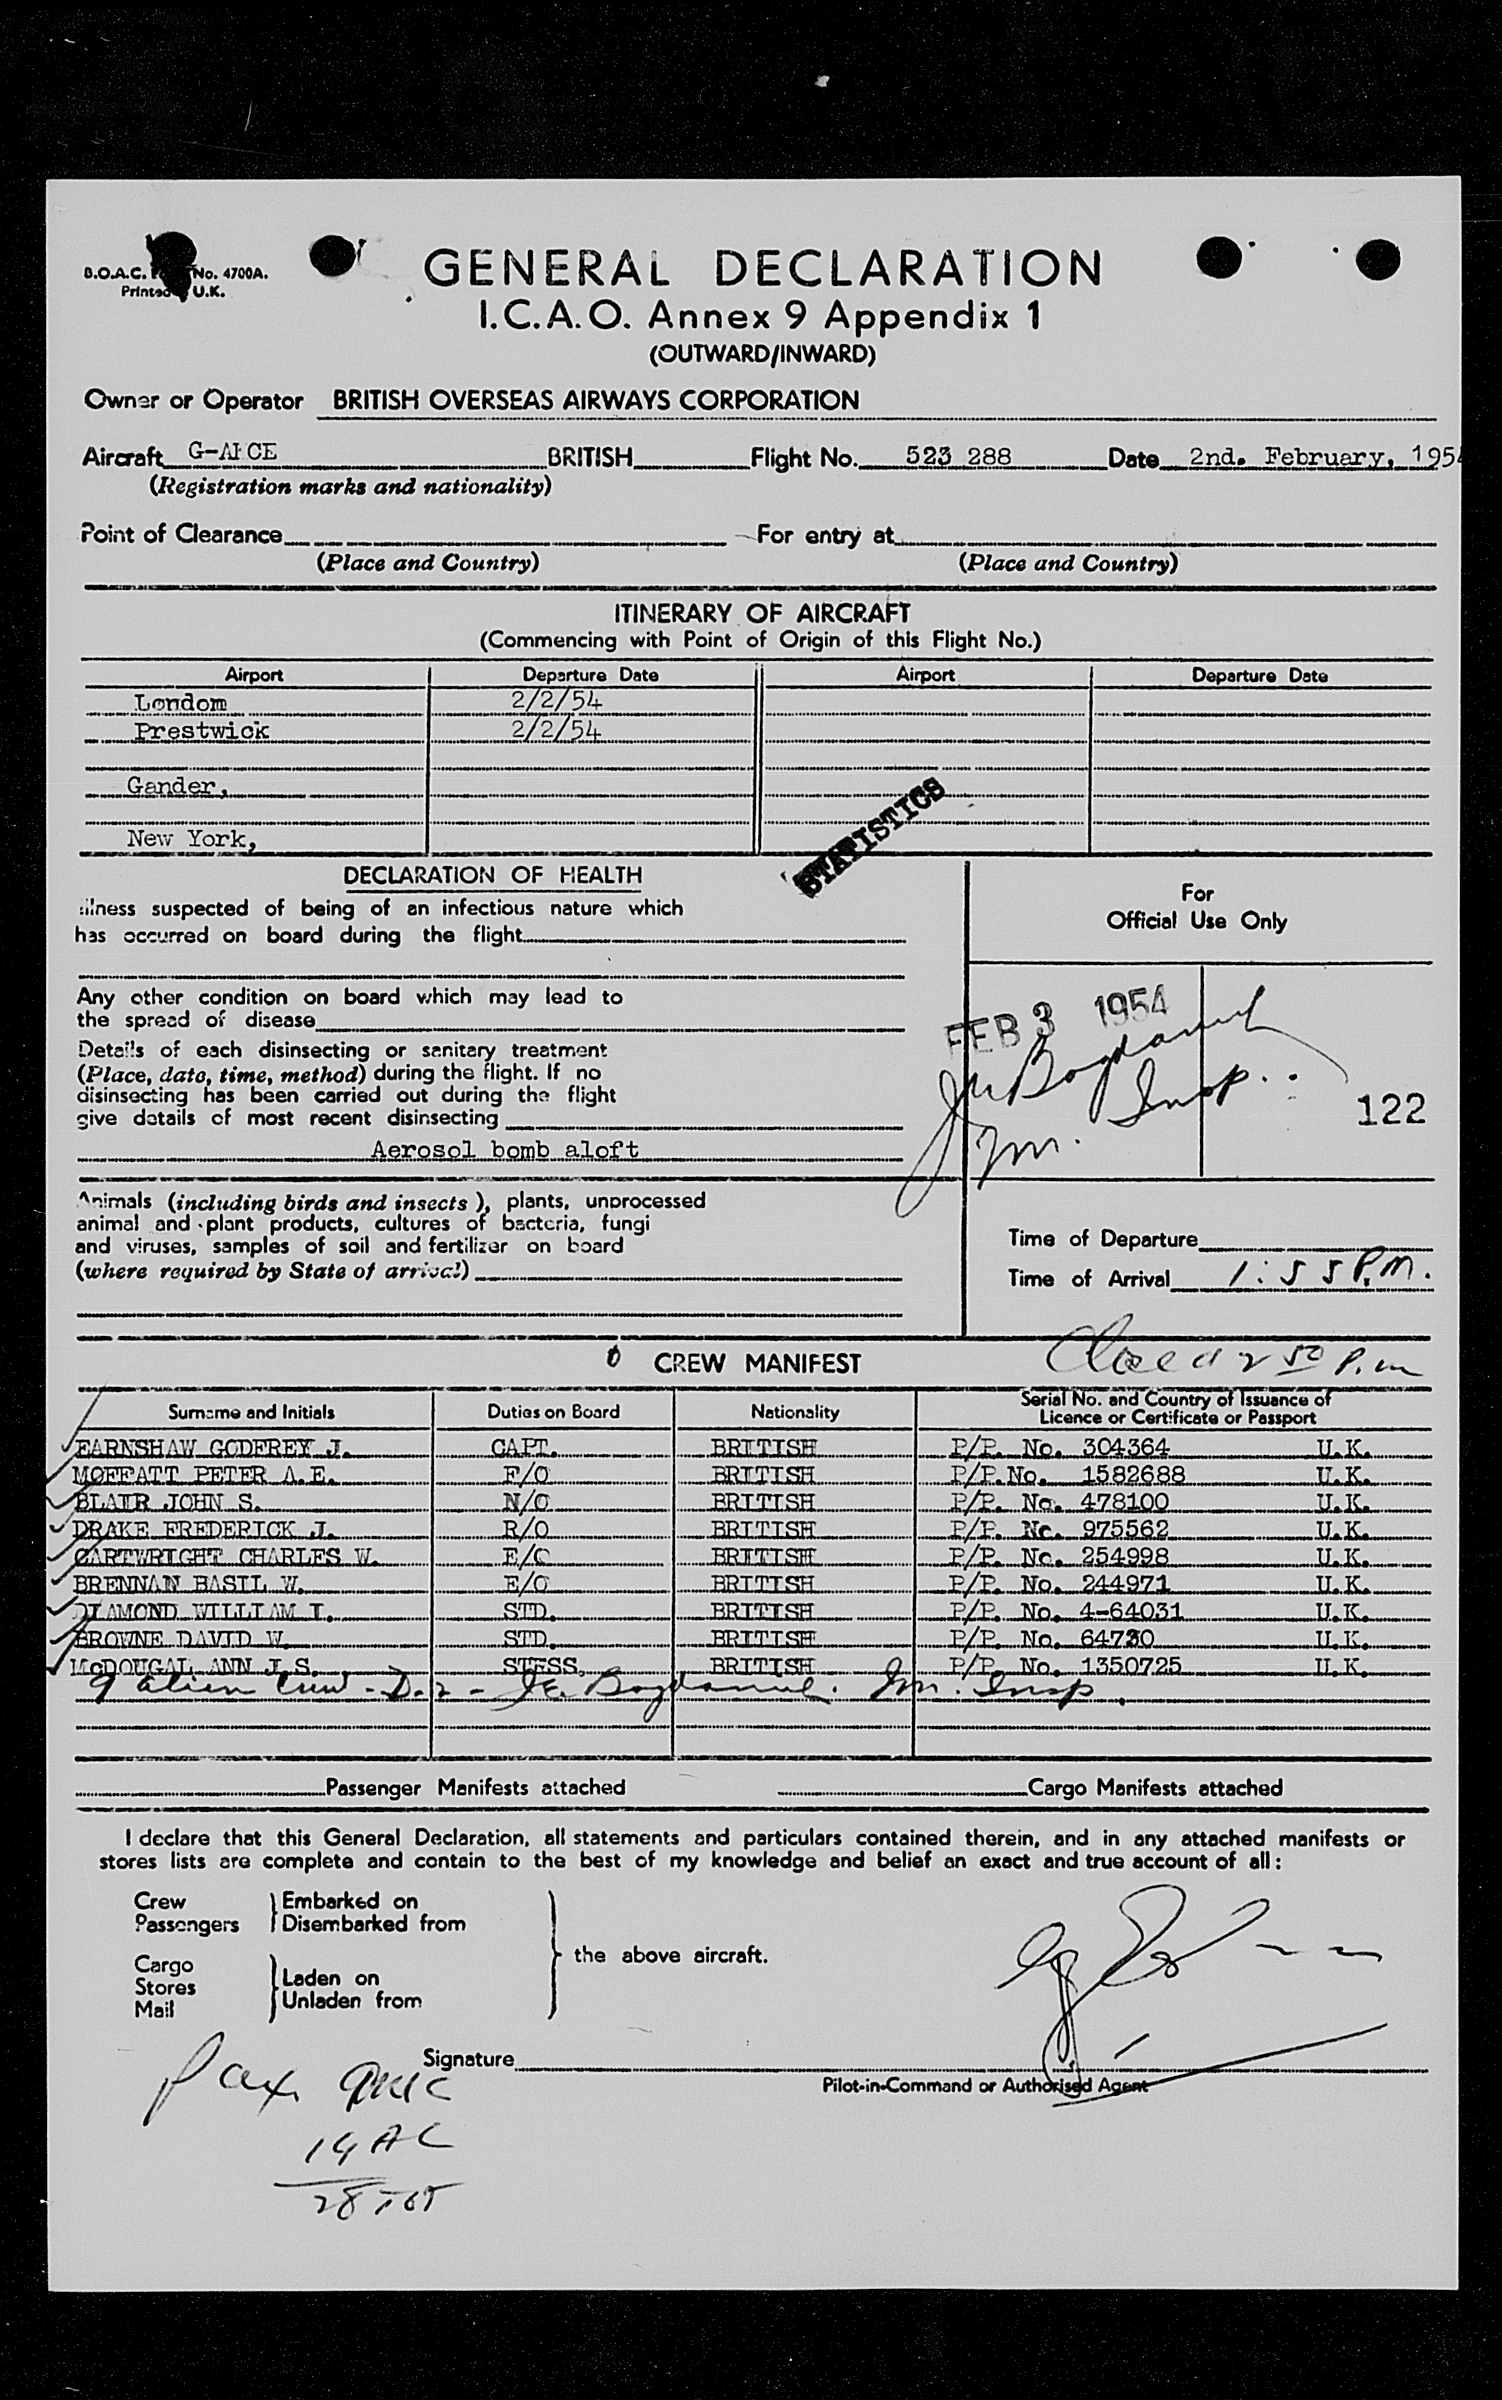 B.O.A.C. No. 4700A.
Printed U.K.
GENERAL DECLARATION
I.C.A.O. Annex 9 Appendix 1
(OUTWARD/INWARD)
Owner or Operator BRITISH OVERSEAS AIRWAYS CORPORATION
Aircraft BRITISH Flight No. 523 288 Date 2nd. February, 195
(Registration marks and nationality)
Point of Clearance For entry at
(Place and Country) (Place and Country)
ITINERARY OF AIRCRAFT
(Commencing with Point of Origin of this Flight No.)
Airport Departure Date Airport Departure Date
Londom 2/2/54
Prestwick 2/2/54
Gander,
New York,
STATISTICS
DECLARATION OF HEALTH
illness suspected of being of an infectious nature which
has occurred on board during the flight
Any other condition on board which may lead to
the spread of disease
Details of each disinsecting or sanitary treatment
(Place, date, time, method) during the flight. If no
disinsecting has been carried out during the flight
give details of most recent disinsecting
Aerosol bomb aloft
Animals (including birds and insects), plants, unprocessed
animal and plant products, cultures of bacteria, fungi
and viruses, samples of soil and fertilizer on board
(where required by State of arrival)
For
Official Use Only
FEB 3 1954
Insp.
Im.
122
Time of Departure
Time of Arrival 1:55 P.M.
CREW MANIFEST
50 P.m
Surname and Initials Duties on Board Nationality Serial No. and Country of Issuance of Licence or Certificate or Passport
EARNSHAW GODFREY J. CAPT. BRITISH P/P. No. 304364 U.K.
MOFFATT PETER A.E. F/O BRITISH P/P.No. 1582688 U.K.
BLAIR JOHN S. N/O BRITISH P/P. No. 478100 U.K.
DRAKE FREDERICK J. R/O BRITISH P/P. No. 975562 U.K.
CARTWRIGHT CHARLES W. E/O BRITISH P/P. No. 254998 U.K.
BRENNAN BASIL W. E/O BRITISH P/P. No. 244971 U.K.
DIAMOND WILLIAM I. STD. BRITISH P/P. No. 4-64031 U.K.
BROWNE DAVID W. STD. BRITISH P/P. No. 64730 U.K.
McDOUGAL ANN J.S. STESS. BRITISH P/P. No. 1350725 U.K.
9 alien crew - D-2 - Im. Insp.
Passenger Manifests attached Cargo Manifests attached
I declare that this General Declaration, all statements and particulars contained therein, and in any attached manifests or
stores lists are complete and contain to the best of my knowledge and belief an exact and true account of all:
Crew Embarked on
Passengers Disembarked from
the above aircraft.
Cargo
Stores Laden on
Mail Unladen from
Signature
Pilot-in-Command or Authorised Agent
Pax
28 TOT